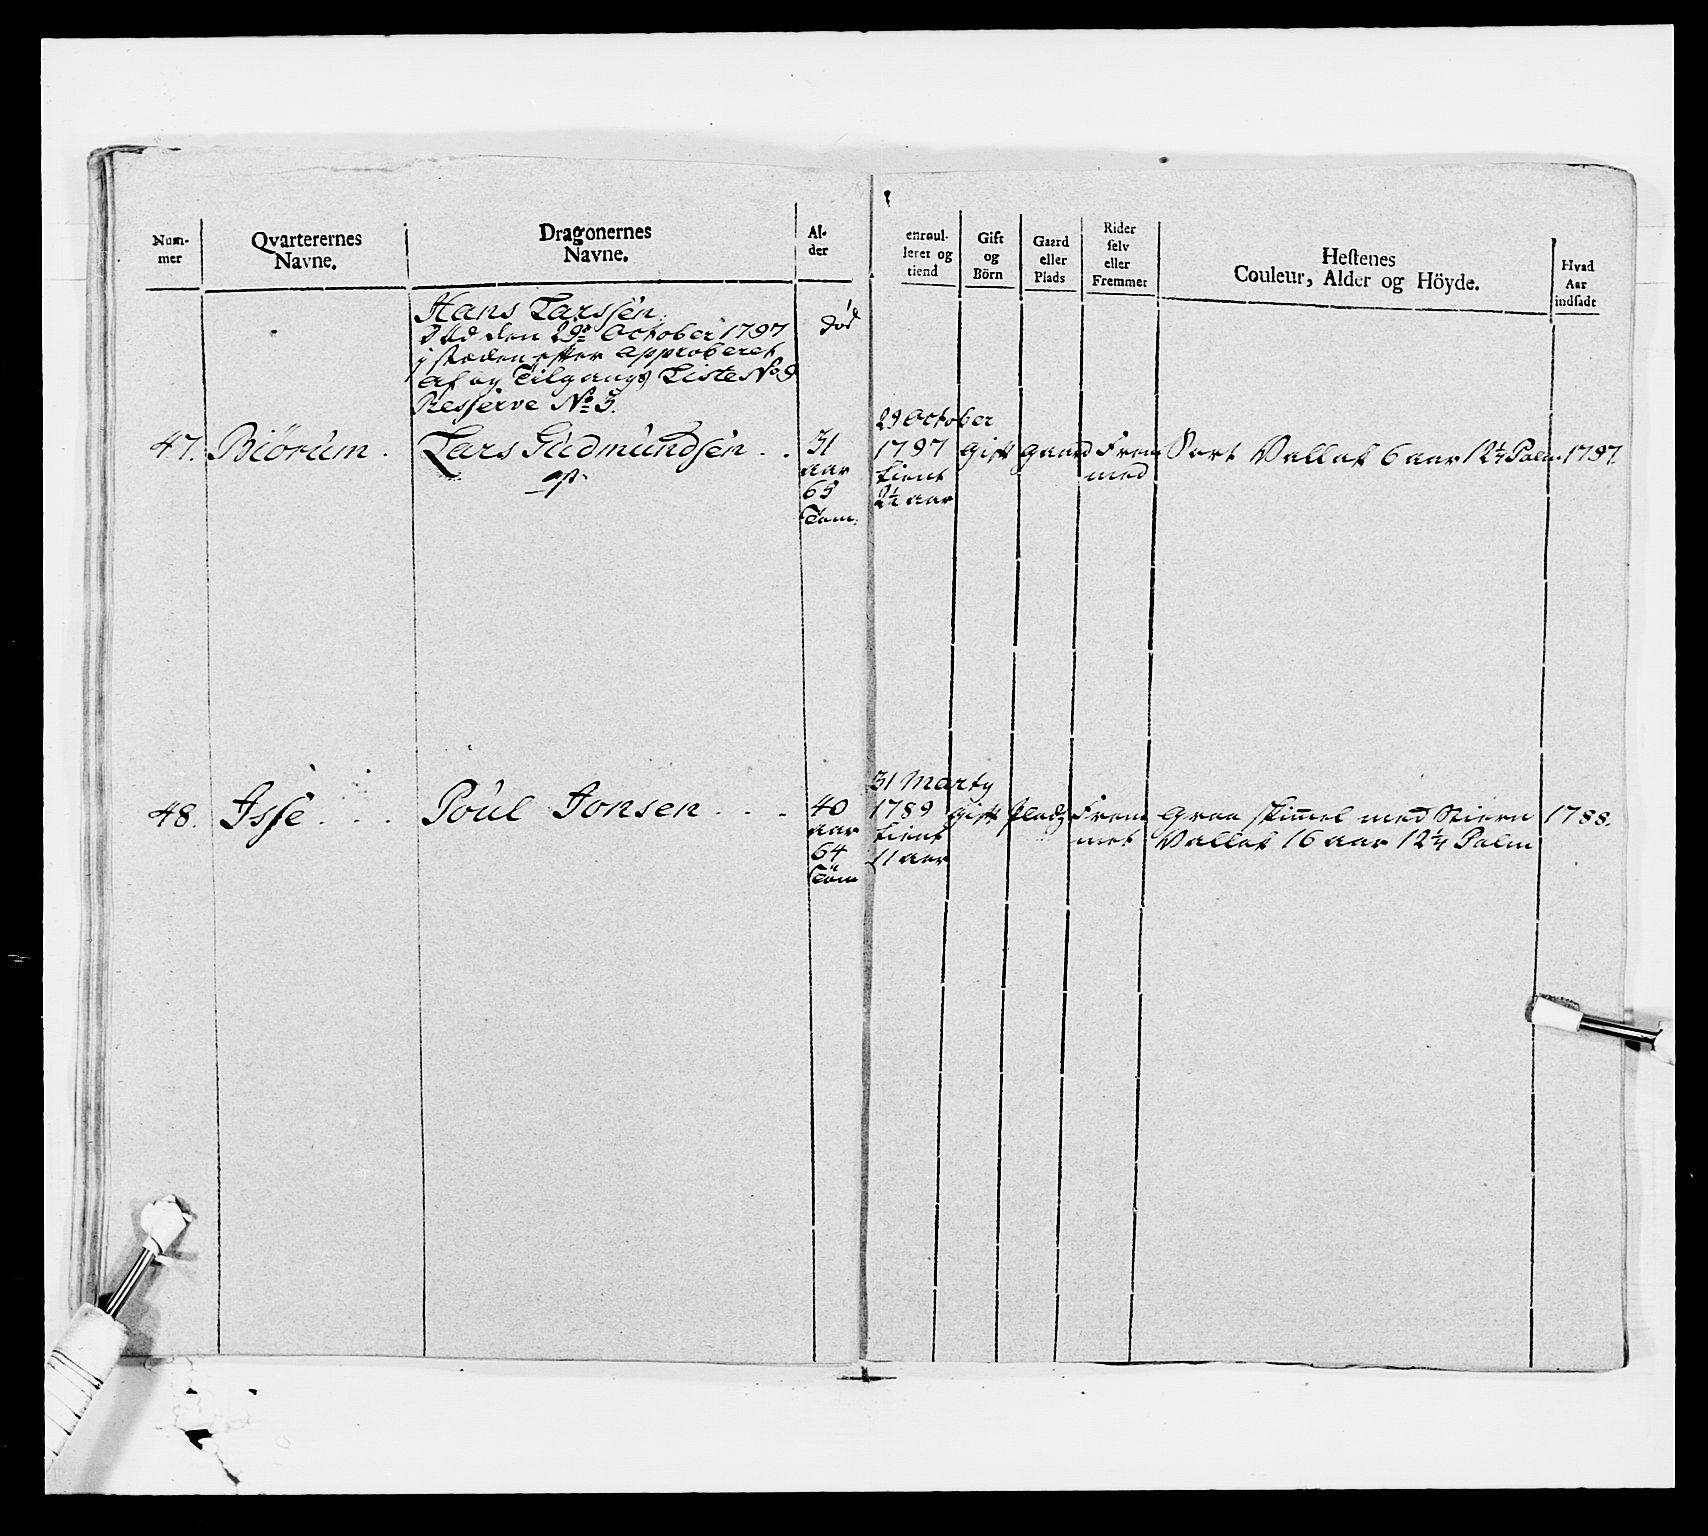 Num-
mer
Qvarterernes
Navne.
Dragonernes
Navne.
Al-
der
enroul-
leret og
tiend
Gift
og
Börn
Gaard
eller
Plads
Rider
selv
eller
Fremmet
Hestenes
Couleur, Alder og Höyde.
Hvad
Aar
indsadt
Hans Larssen.
død
Død den 29de October 1797
i stæden efter approberet
Af og Tilgangs Liste No 9
Resserve No 3.
47. Biörum. Lars Gudmundsen . .
31
aar
65
Tom:
29 October
1797
tient
2¼ aar
Gift
gaard
Frem
med
Sort Vallak 6 aar 12¼ Palm
1797.
48. Isse . . . Poul Jonsen . . .
40
aar
64
Tom
31 Marty
1789
tient
11 aar
Gift
Pladz
Frem
met
Graa skimmel med Stiern
Vallak 16 aar 12¼ Palm
1788.